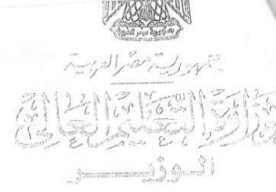 جمهورية مصر العربية
وزارة التعليم العالي
الوزيـــــــر